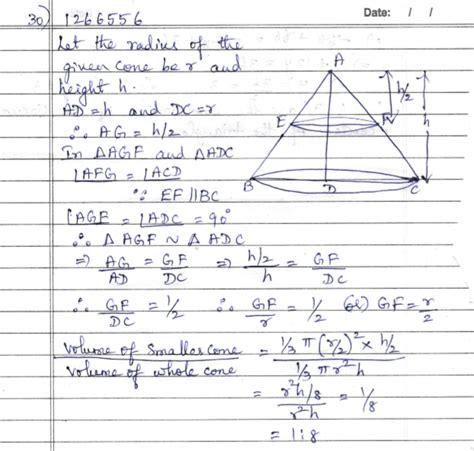 Date: / /
30) 1266556
Let the radius of the
given cone be r and
height h.
AD = h and DC = r
∴ AG = h/2
In ΔAGF and ΔADC
∠AFG = ∠ACD
∵ EF || BC
∠AGF = ∠ADC = 90°
∴ Δ AGF ~ Δ ADC
⇒ AG/AD = GF/DC ⇒ h/2/h = GF/DC
∴ GF/DC = 1/2 ∴ GF/r = 1/2 (or) GF = r/2
Volume of smaller cone/Volume of whole cone = 1/3 π (r/2)² × h/2 / 1/3 π r² h
= r²h/8 / r²h = 1/8
= 1:8
A
h/2
h
E
F
B
D
C